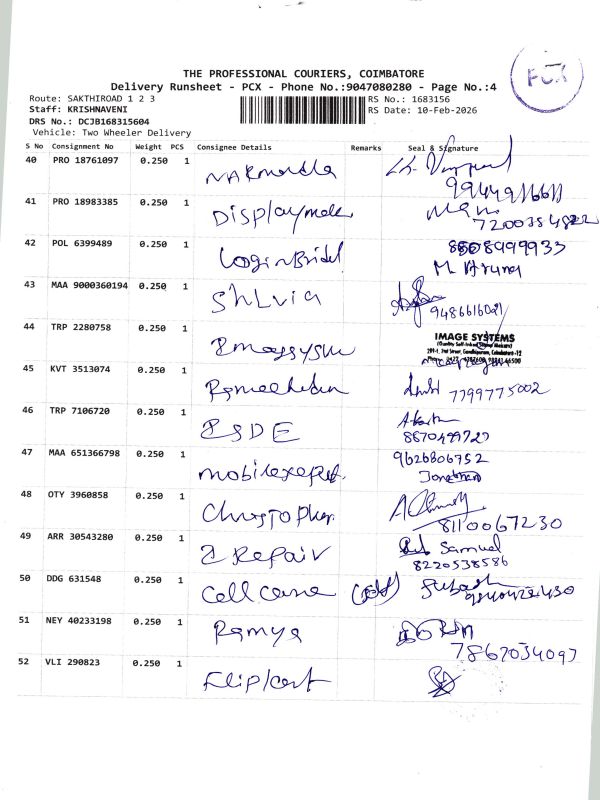 PCX
THE PROFESSIONAL COURIERS, COIMBATORE
Delivery Runsheet - PCX - Phone No.:9047080280 - Page No.:4
Route: SAKTHIROAD 1 2 3
RS No.: 1683156
Staff: KRISHNAVENI
RS Date: 10-Feb-2026
DRS No.: DCJB168315604
Vehicle: Two Wheeler Delivery
S No Consignment No Weight PCS Consignee Details Remarks Seal & Signature
40 PRO 18761097 0.250 1
41 PRO 18983385 0.250 1
7200354822
42 POL 6399489 0.250 1 LoginBridel 8608999933
M Aruna
43 MAA 9000360194 0.250 1 Shlvia
44 TRP 2280758 0.250 1 IMAGE SYSTEMS
45 KVT 3513074 0.250 1 7799775002
46 TRP 7106720 0.250 1
47 MAA 651366798 0.250 1 9626806752
48 OTY 3960858 0.250 1 Christopher 8110067230
49 ARR 30543280 0.250 1 2 Repair Samuel
8220538586
50 DDG 631548 0.250 1 Cell
51 NEY 40233198 0.250 1 Ramya
7867034097
52 VLI 290823 0.250 1 Flipkart